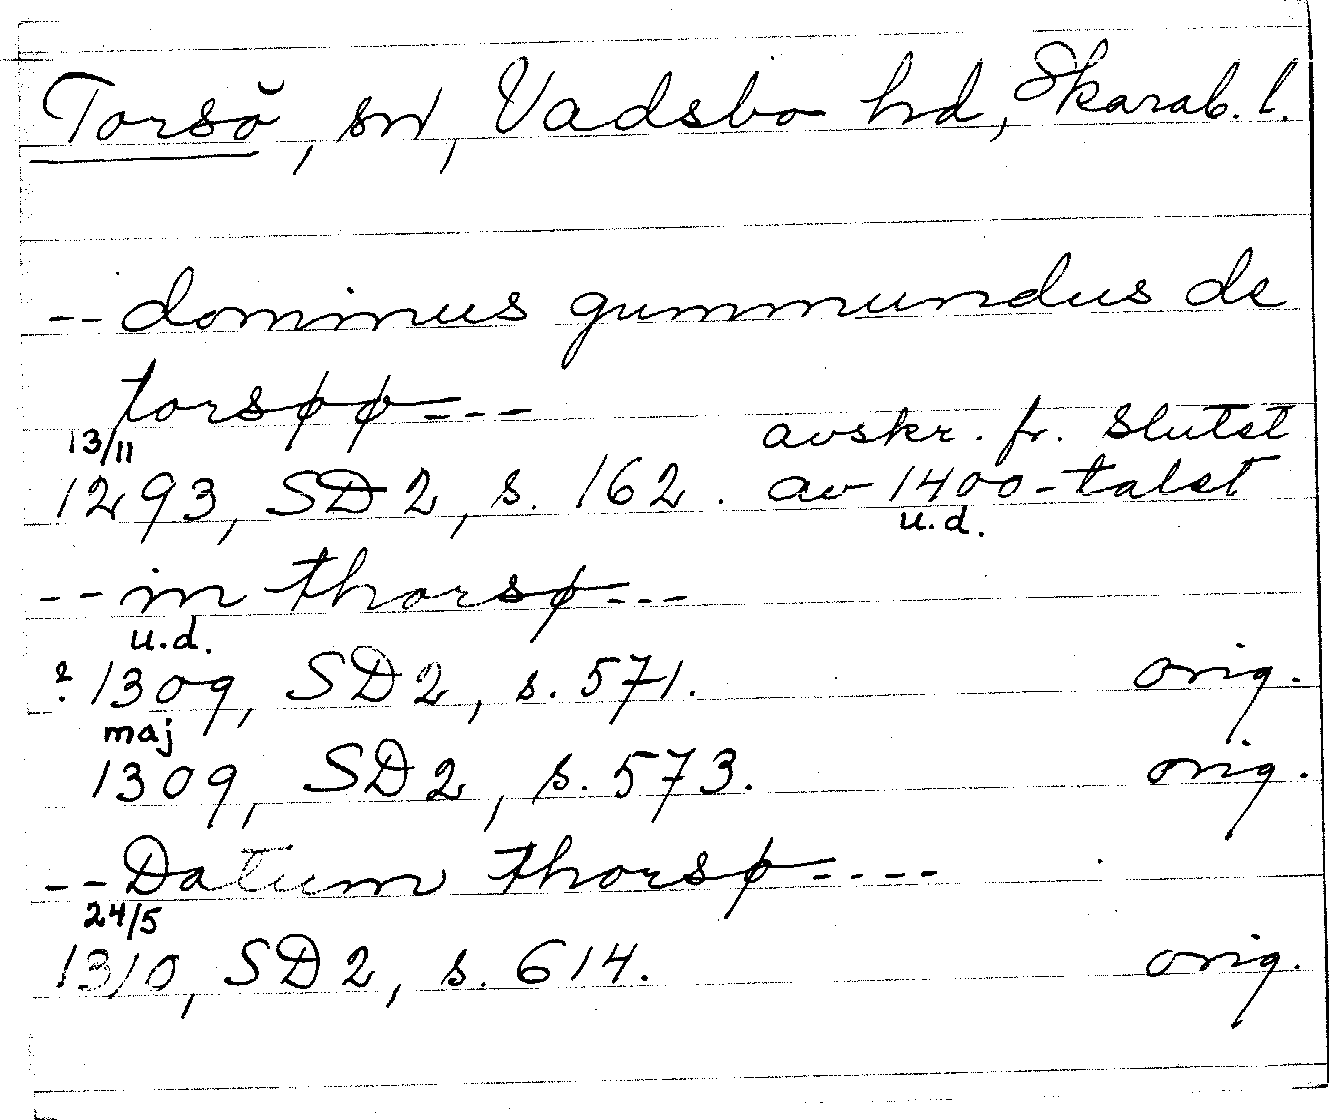 Torsö, sn, Vadsbo hd, Skarab. l.
-- dominus gummundus de
torsøø ---
13/11
avskr. fr. slutet
1293, SD 2, s. 162. av 1400-talet
u.d.
-- in thorsø ---
u.d.
? 1309, SD 2, s. 571. orig.
maj
1309, SD 2, s. 573. orig.
-- Datum thorsø ----
24/5
1310, SD 2, s. 614. orig.